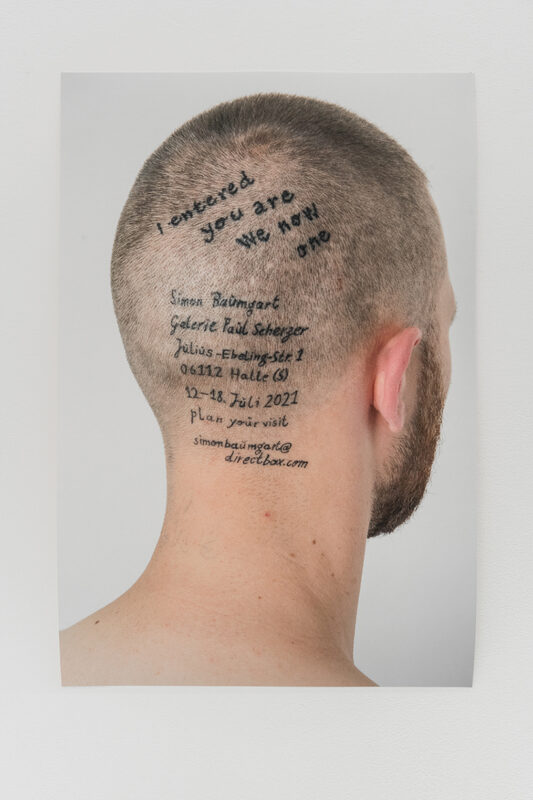 I entered
you are
We now
one
Simon Baumgart
Galerie Paul Scherzer
Julius-Ebeling-Str. 1
06112 Halle (S)
12–18. Juli 2021
plan your visit
simonbaumgart@
directbox.com